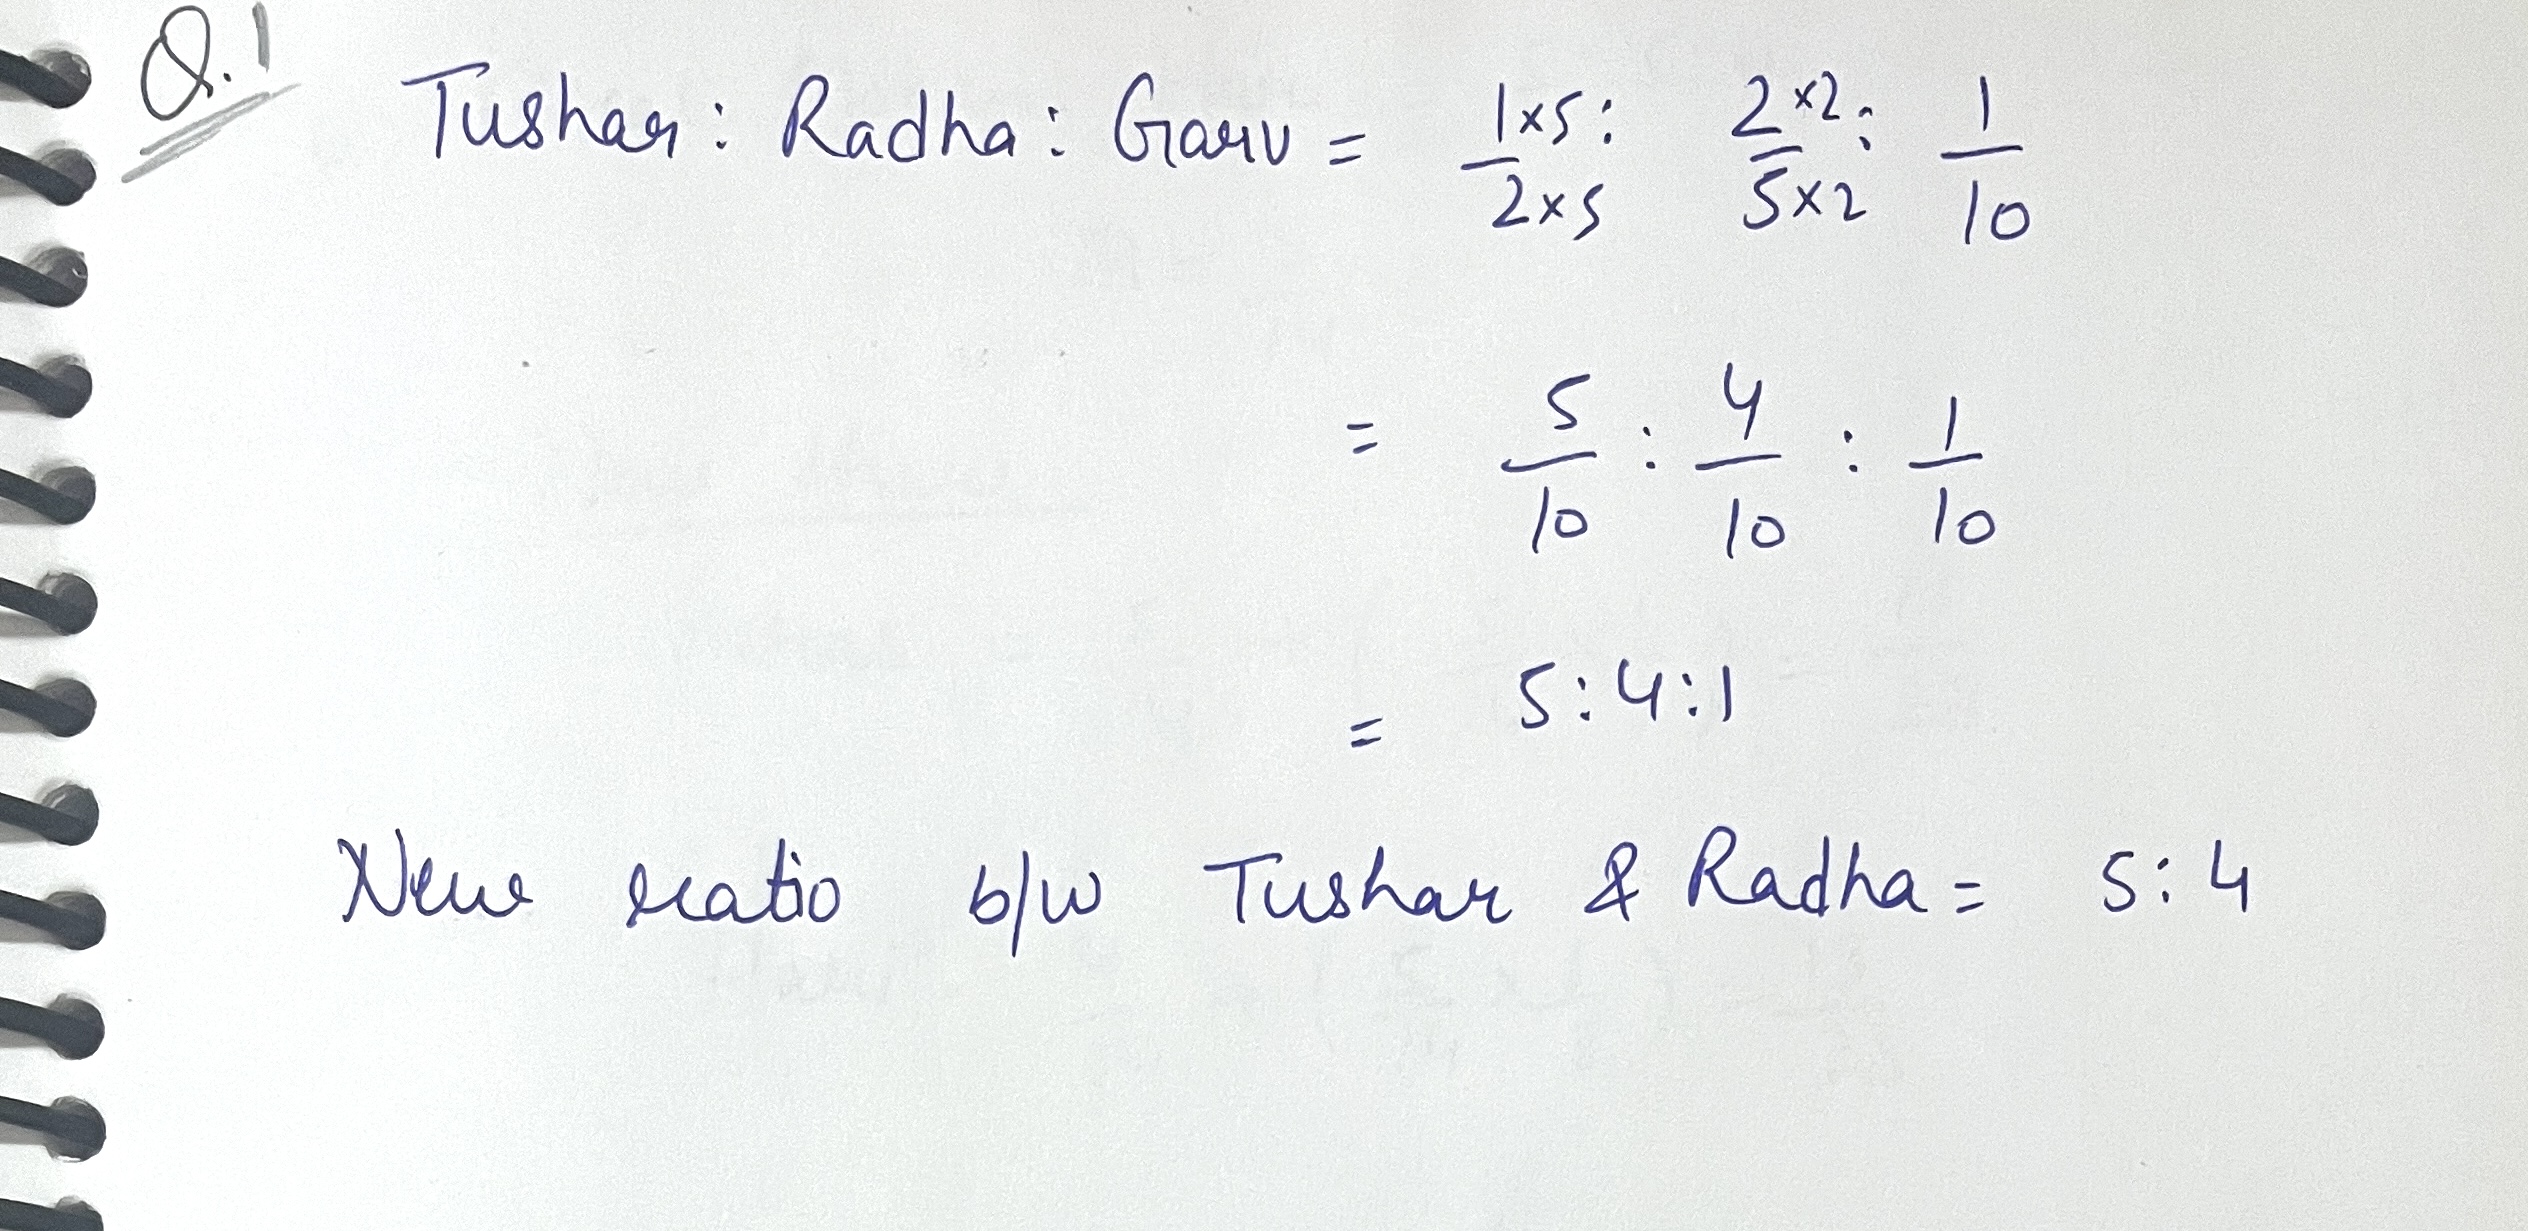 Q.1
Tushar : Radha : Garv = 1×5/2×5 : 2×2/5×2 : 1/10
= 5/10 : 4/10 : 1/10
= 5:4:1
New ratio b/w Tushar & Radha = 5:4